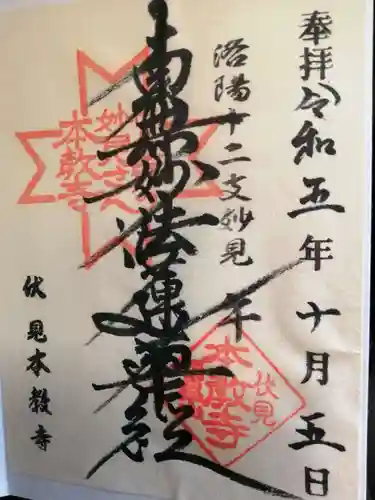 奉拝令和五年十月五日
洛陽十二支妙見 午
南無妙法蓮華経
伏見本教寺
妙見さん
本教寺
伏見
本教寺